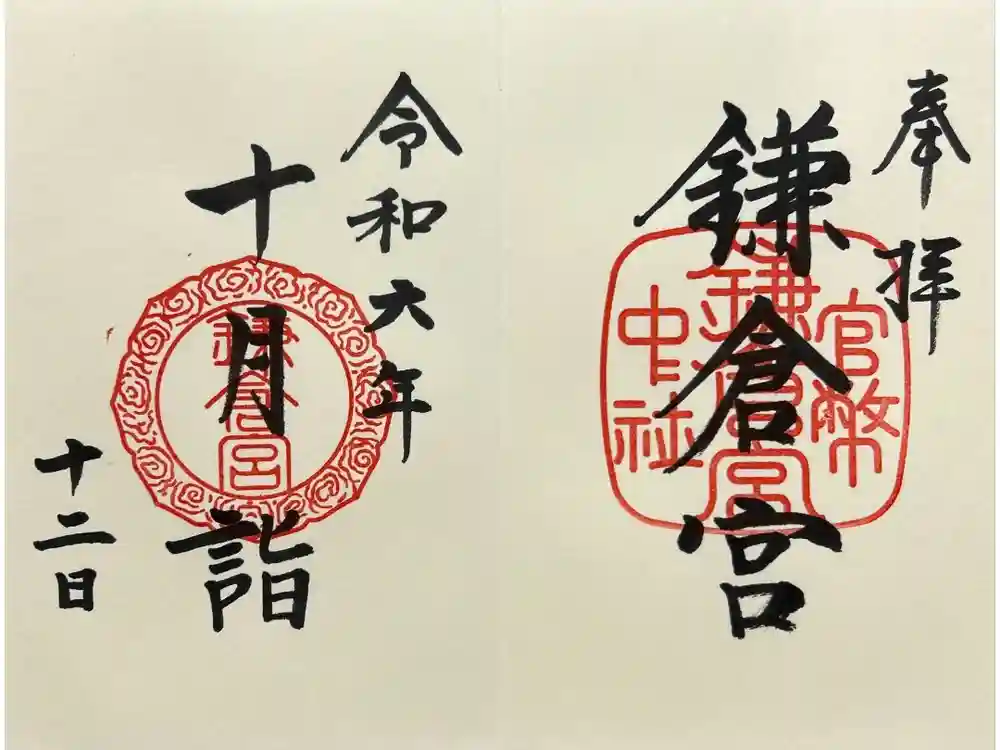 奉拝
鎌倉宮
官幣
鎌倉宮
中社
令和六年
十月詣
十二日
鎌倉宮